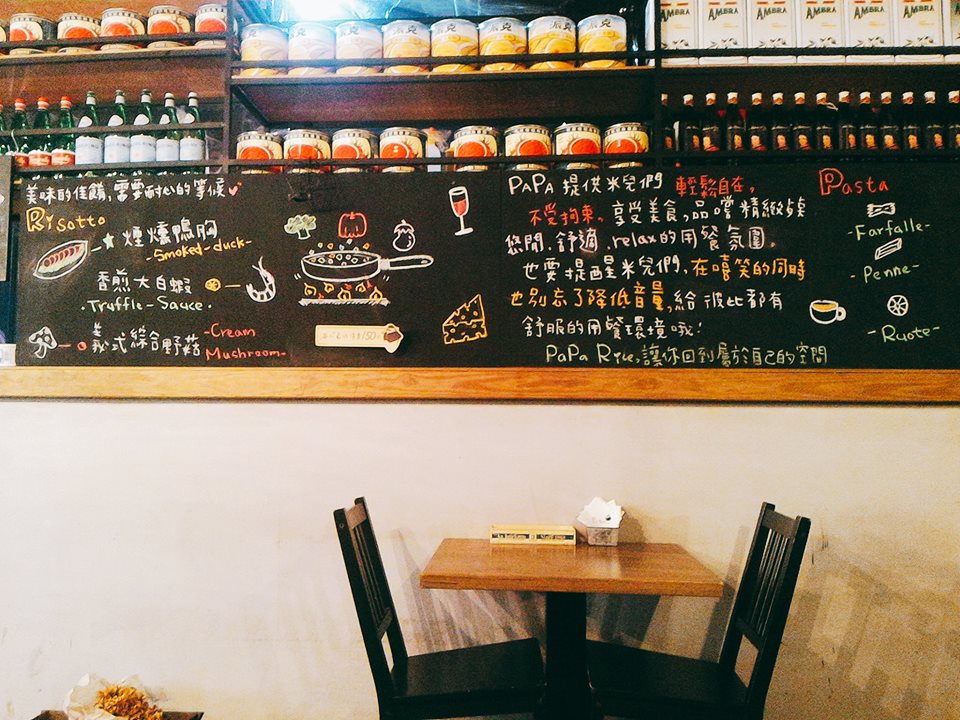 AMBRA AMBRA AMBRA AMBRA AMBRA AMBRA
辰克
美味的佳餚,需要耐心的等候
Risotto
煙燻鴨胸
-Smoked-duck-
香煎大白蝦
·Truffle-Sauce·
義式綜合野菇
-Cream
Mushroom-
PAPA 提供米兒們 輕鬆自在,
不受拘束。享受美食,品嚐精緻餐
悠閒.舒適.relax的用餐氛圍.
也要提醒米兒們,在嘻笑的同時
也別忘了降低音量,給彼此都有
舒服的用餐環境哦!
PaPa Rice,讓你回到屬於自己的空間
Pasta
-Farfalle-
-Penne-
-Ruote-